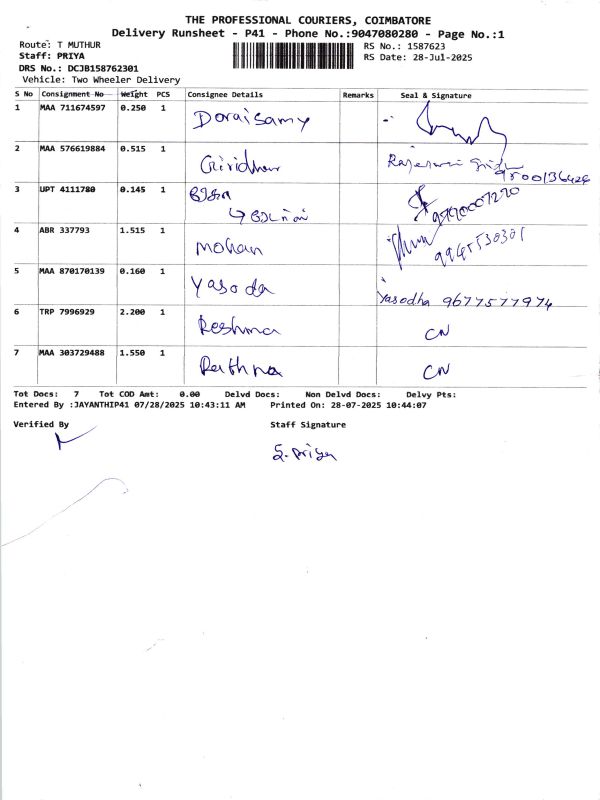 THE PROFESSIONAL COURIERS, COIMBATORE
Delivery Runsheet - P41 - Phone No.:9047080280 - Page No.:1
Route: T MUTHUR RS No.: 1587623
Staff: PRIYA RS Date: 28-Jul-2025
DRS No.: DCJB158762301
Vehicle: Two Wheeler Delivery
S No Consignment No Weight PCS Consignee Details Remarks Seal & Signature
1 MAA 711674597 0.250 1 Doraisamy
2 MAA 576619884 0.515 1 Giridhar
3 UPT 4111780 0.145 1
4 ABR 337793 1.515 1 Mohan
5 MAA 870170139 0.160 1 Yasoda Yasodha 9677577974
6 TRP 7996929 2.200 1 Reshma CN
7 MAA 303729488 1.550 1 Rathna CN
Tot Docs: 7 Tot COD Amt: 0.00 Delvd Docs: Non Delvd Docs: Delvy Pts:
Entered By :JAYANTHIP41 07/28/2025 10:43:11 AM Printed On: 28-07-2025 10:44:07
Verified By Staff Signature
S. Priya